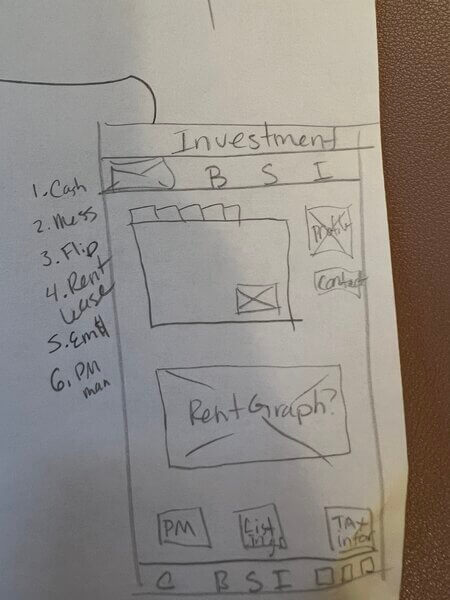 Investment
B S I
1. Cash
2. Mess
3. Flip
4. Rent
Lease
5. Emd
6. PM
man
Profile
Contact
Rent Graph?
PM
List
Info
TAX
infor
C B S I